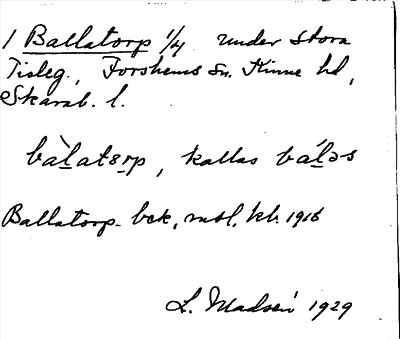 1 Ballatorp 1/4 under Stora
Tisleg., Forshems sn. Kinne hd,
Skarab. l.
bàlatɜrp, kallas báləs
Ballatorp - bck, mbl, kb. 1916
L. Madsén 1929